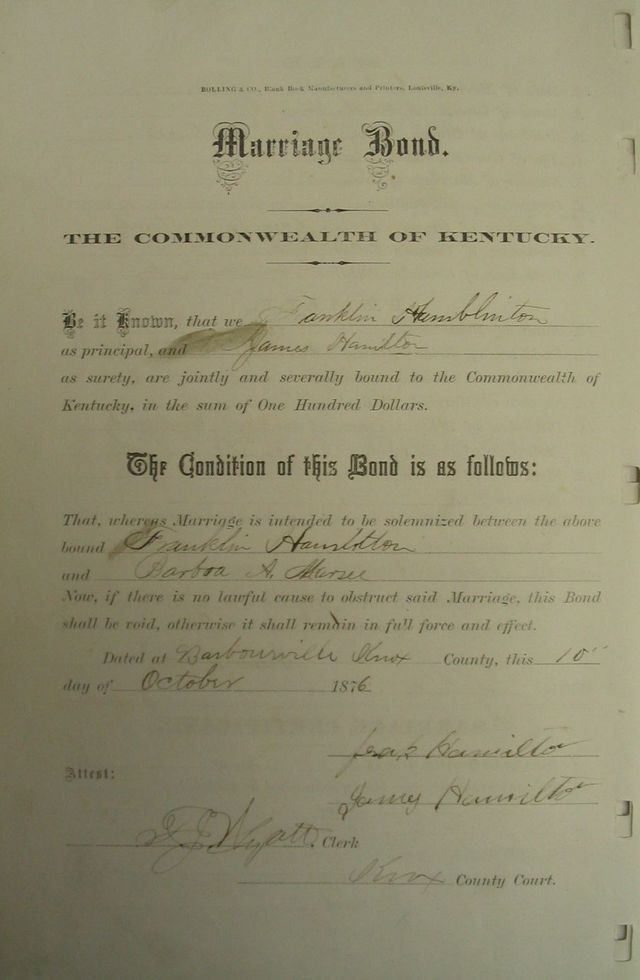 BOLLING & CO., Blank Book Manufacturers and Printers, Louisville, Ky.
Marriage Bond.
THE COMMONWEALTH OF KENTUCKY.
Be it Known, that we Franklin Hamblinton
as principal, and James Hamilton
as surety, are jointly and severally bound to the Commonwealth of
Kentucky, in the sum of One Hundred Dollars.
The Condition of this Bond is as follows:
That, whereas Marriage is intended to be solemnized between the above
bound Franklin Hambliton
and Barboa A. Marsee
Now, if there is no lawful cause to obstruct said Marriage, this Bond
shall be void, otherwise it shall remain in full force and effect.
Dated at Barbourville Knox County, this 10"
day of October 1876
Hamilton
Attest:
James Hamilton
Wyatt, Clerk
Knox County Court.